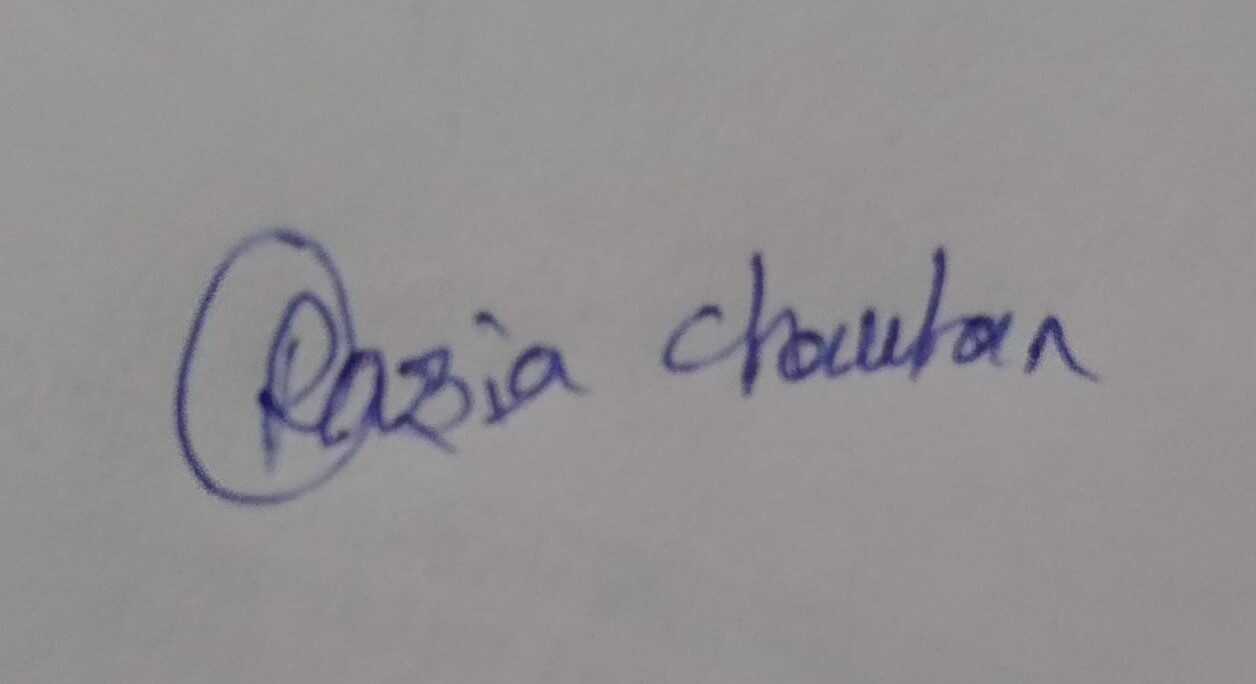 Razia Chauhan